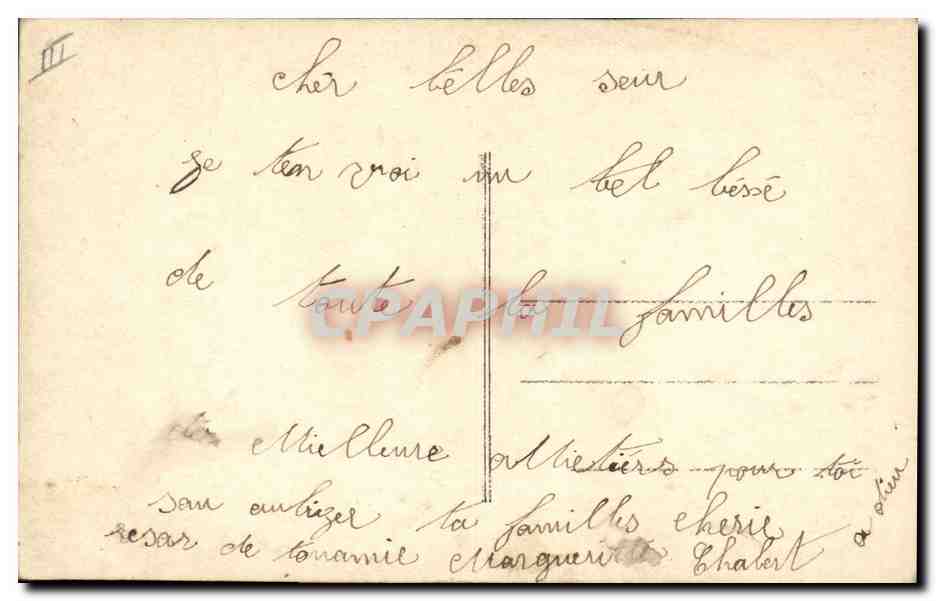 III
chér bélles seur
je ten vroi un bel béssé
de toute la familles
CPAPHIL
Mielleure amietiérs pour toi
san aublizer ta familles cherie
resar de tonamie Marguerite Chabert
a dieu